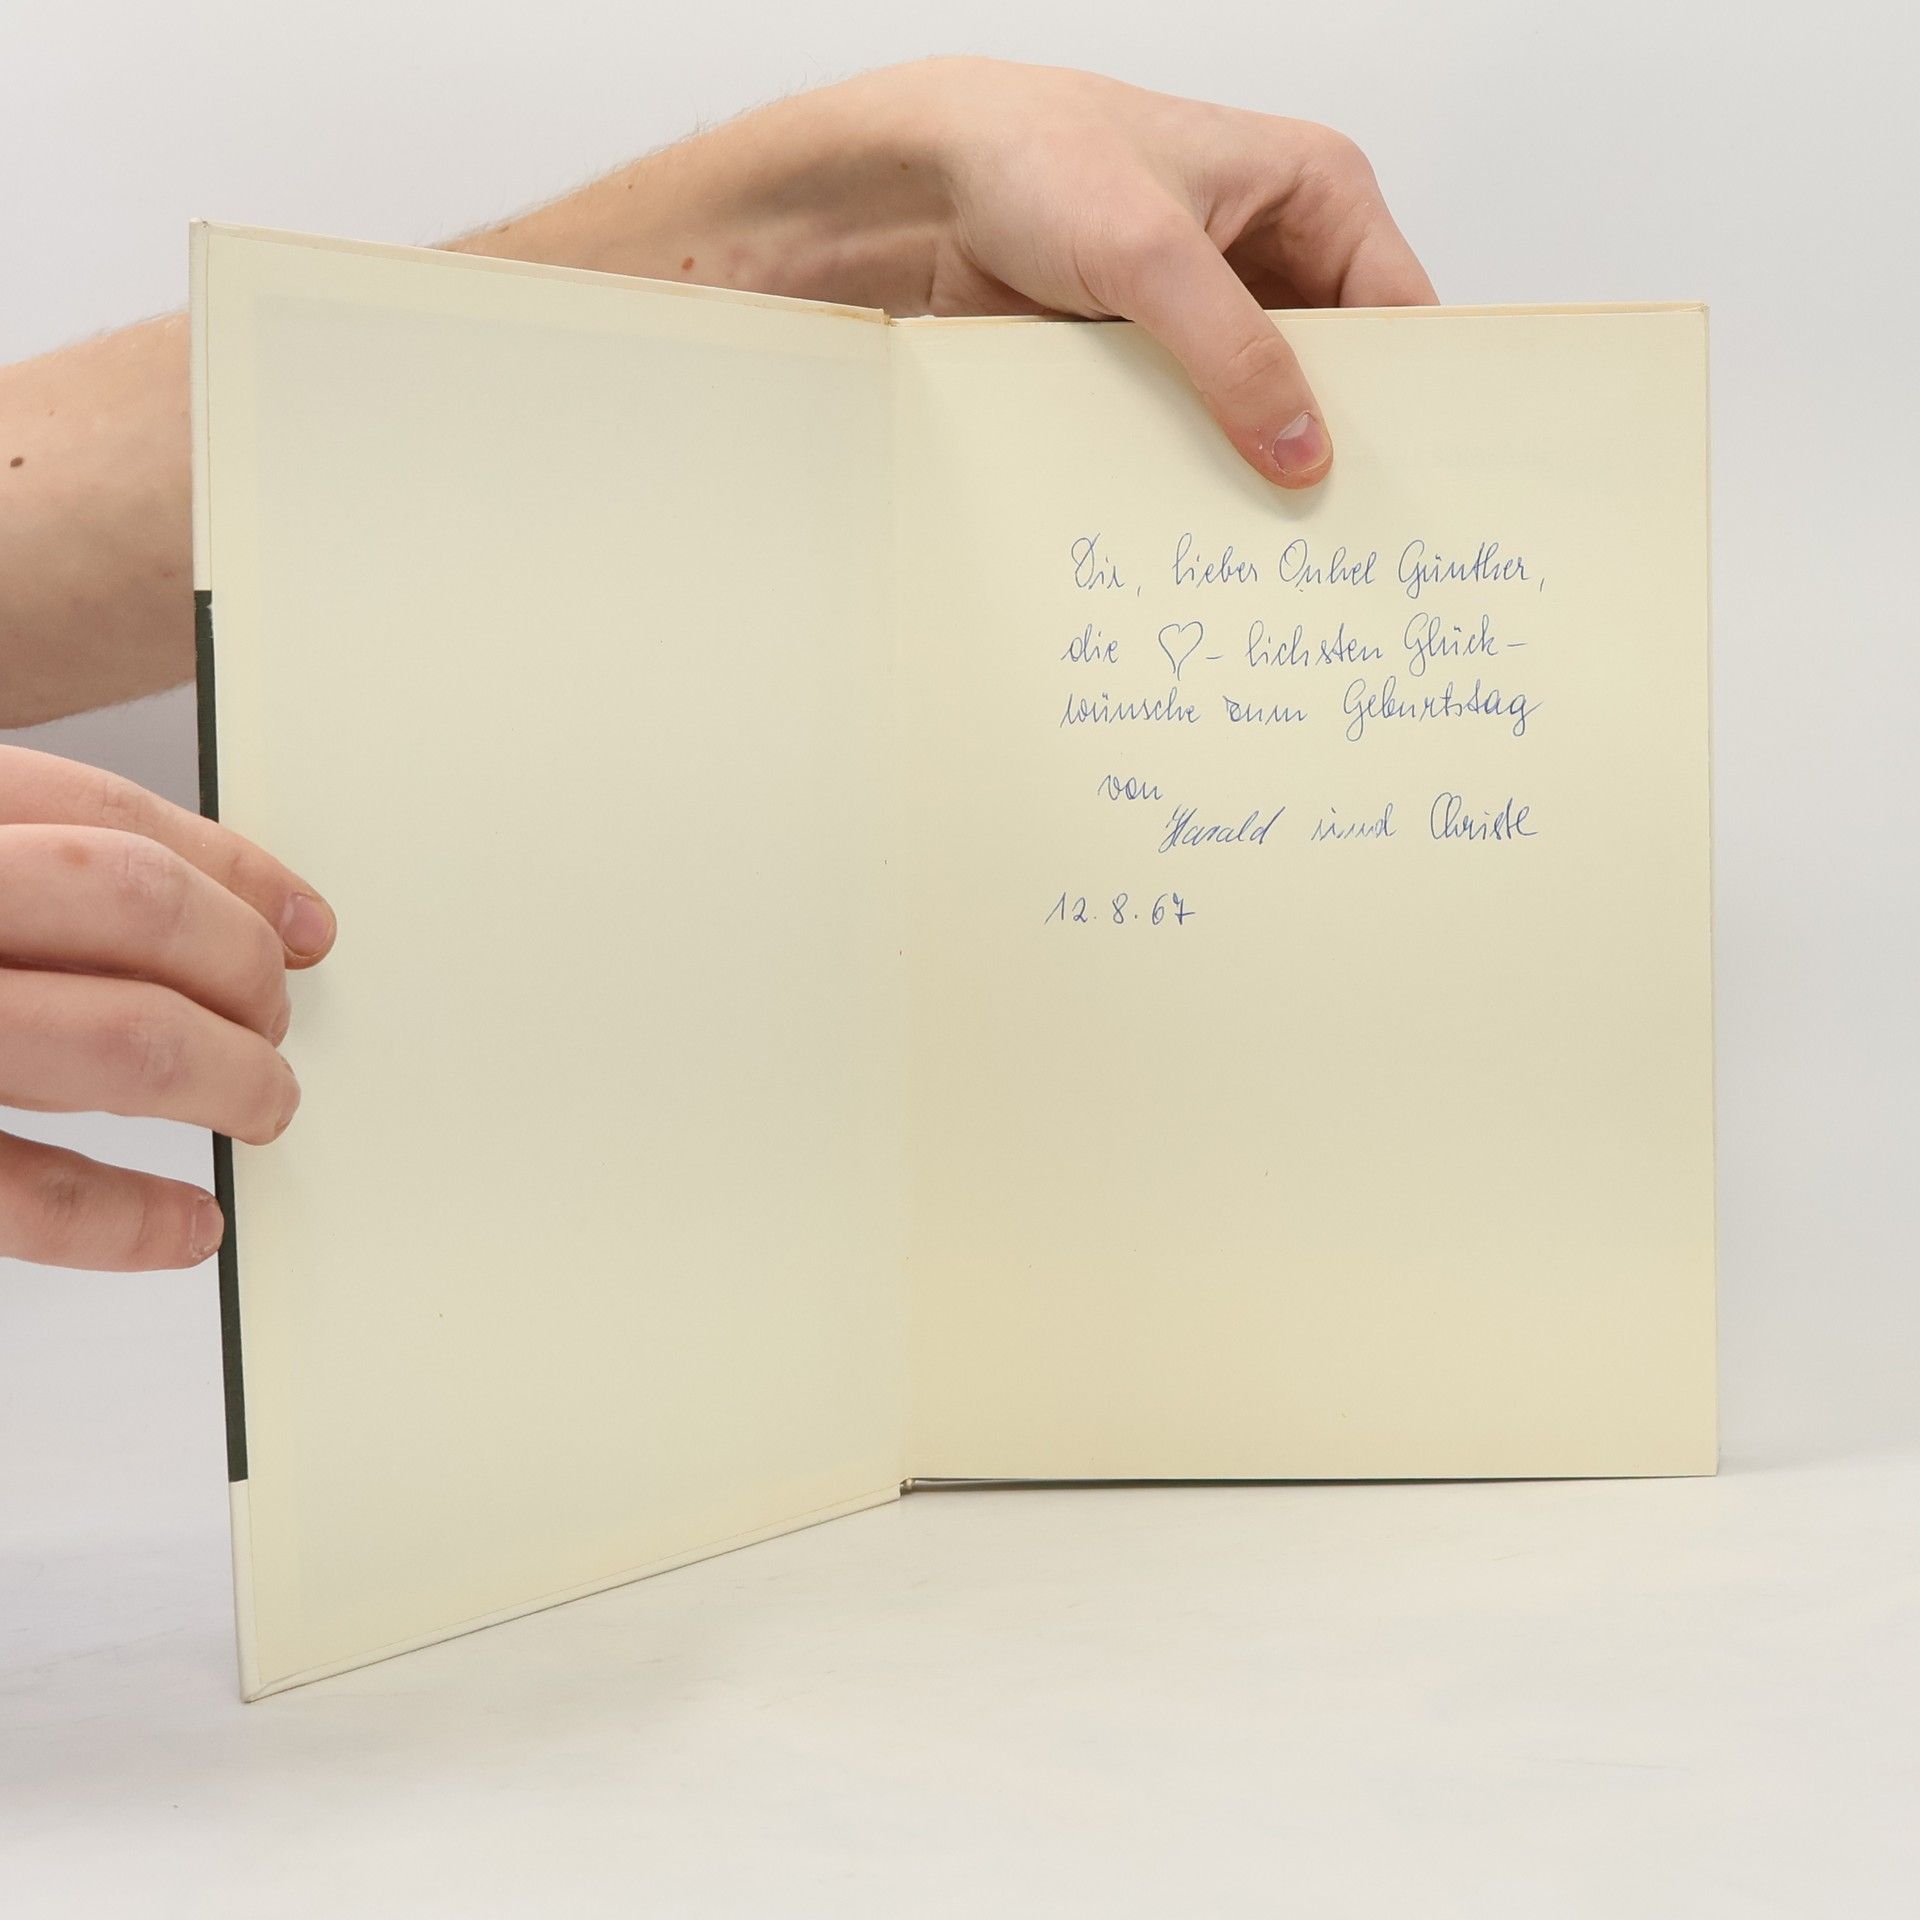 Dir, lieber Onkel Günther,
die ♡- lichsten Glück-
wünsche zum Geburtstag
von
Harald und Christl
12. 8. 67